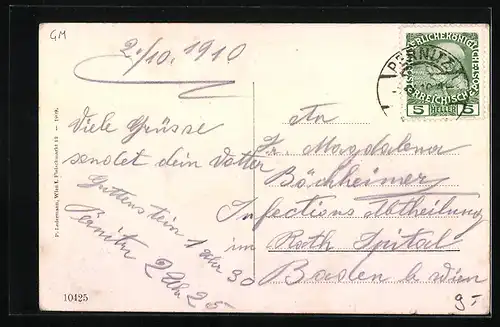 GM
2./10. 1910
PERNITZ
5 HELLER 5
Viele Grüsse
sendet dein Vatter
Guttenstein 1 Uhr 30
Pernitz 2 Uhr 25
An
Fr. Magdalena
Bächheimer
Infections Abtheilung
im Rath Spital
Baden b Wien
P. Ledermann, Wien I. Fleischmarkt 12 – 1909.
10425
9-